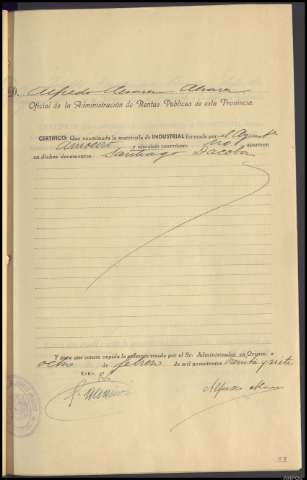 Alfredo
Oficial de la Administración de Rentas Públicas de esta Provincia.
CERTIFICO: Que examinada la matrícula de INDUSTRIAL formada por el Ayunt.
y ejercicio corriente, no aparece
en dichos documentos Santiago
Y para que conste expido la presente visada por el Sr. Administrador en Orense a
ocho de febrero de mil novecientos treinta y siete
Alfredo